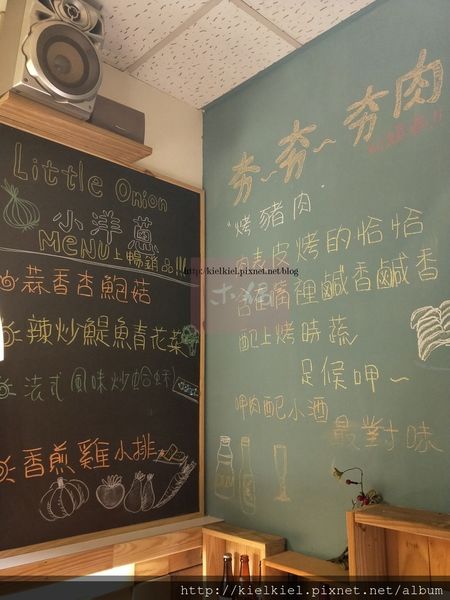 Little Onion
小洋蔥
MENU上暢銷品!!!
蒜香杏鮑菇
辣炒鯷魚青花菜
法式風味炒蛤蜊
香煎雞小排
夯~夯~夯肉
"烤豬肉"
肉表皮烤的恰恰
含在嘴裡鹹香鹹香
配上烤時蔬
足候呷~
呷肉配小酒
最對味
http://kielkiel.pixnet.net/blog
http://kielkiel.pixnet.net/album